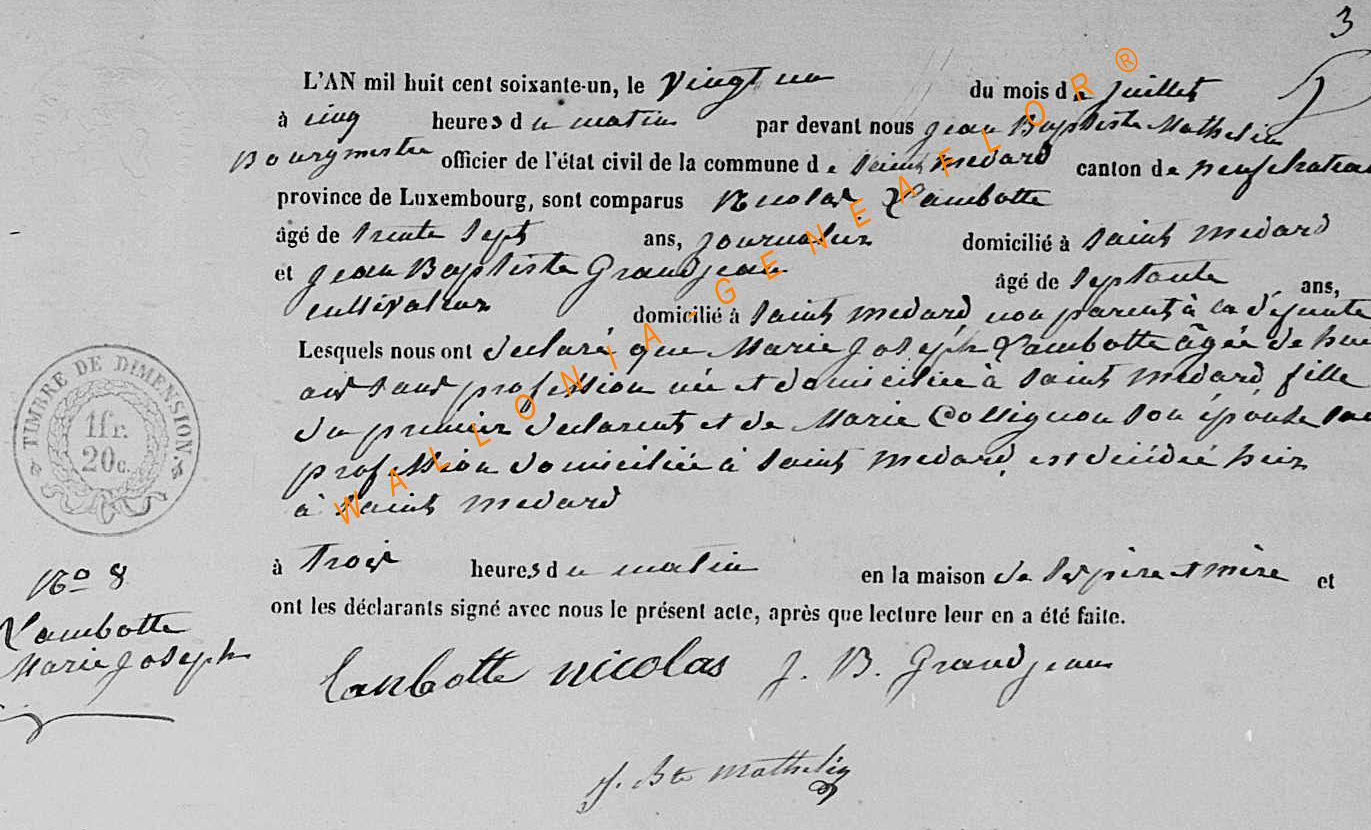 3
L'AN mil huit cent soixante-un, le vingt un du mois de juillet
à cinq heures du matin par devant nous jean Baptiste Mathelin
Bourgmestre officier de l'état civil de la commune de saint medard canton de neufchateau
province de Luxembourg, sont comparus Nicolas Lambotte
âgé de trente sept ans, journalier domicilié à saint medard
et jean Baptiste Grandjean âgé de septante ans,
cultivateur domicilié à saint medard non parent à la défunte
Lesquels nous ont declaré que Marie joseph Lambotte âgée de huit
ans sans profession née et domiciliée à saint medard, fille
du premier declarent et de Marie Collignon son épouse sans
profession domiciliée à saint medard, est décédée hier
à saint medard
à trois heures du matin en la maison de ses père et mère et
ont les déclarants signé avec nous le présent acte, après que lecture leur en a été faite.
TIMBRE DE DIMENSION.
1fr.
20c.
No 8
Lambotte
Marie joseph
lambotte nicolas J. B. Grandjean
J. Bte Mathelin
WALLONIA-GENEAFLOR®